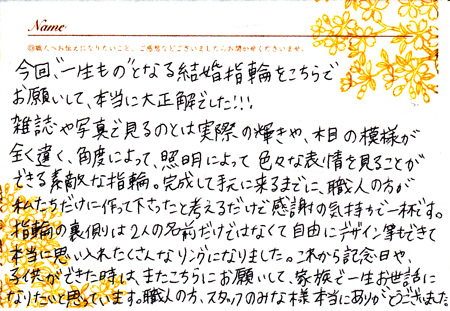 Name
◎職人へお伝えになりたいこと、ご感想などございましたらお聞かせくださいませ。
今回、"一生もの"となる結婚指輪をこちらで
お願いして、本当に大正解でした!!!
雑誌や写真で見るのとは実際の輝きや、木目の模様が
全く違く、角度によって、照明によって色々な表情を見ることが
できる素敵な指輪。完成して手元に来るまでに、職人の方が
私たちだけに作って下さったと考えるだけで感謝の気持ちで一杯です。
指輪の裏側は2人の名前だけではなくて自由にデザイン等もできて
本当に思い入れたくさんなリングになりました。これから記念日や、
子供ができた時は、またこちらにお願いして、家族で一生お世話に
なりたいと思っています。職人の方、スタッフのみな様本当にありがとうございました。